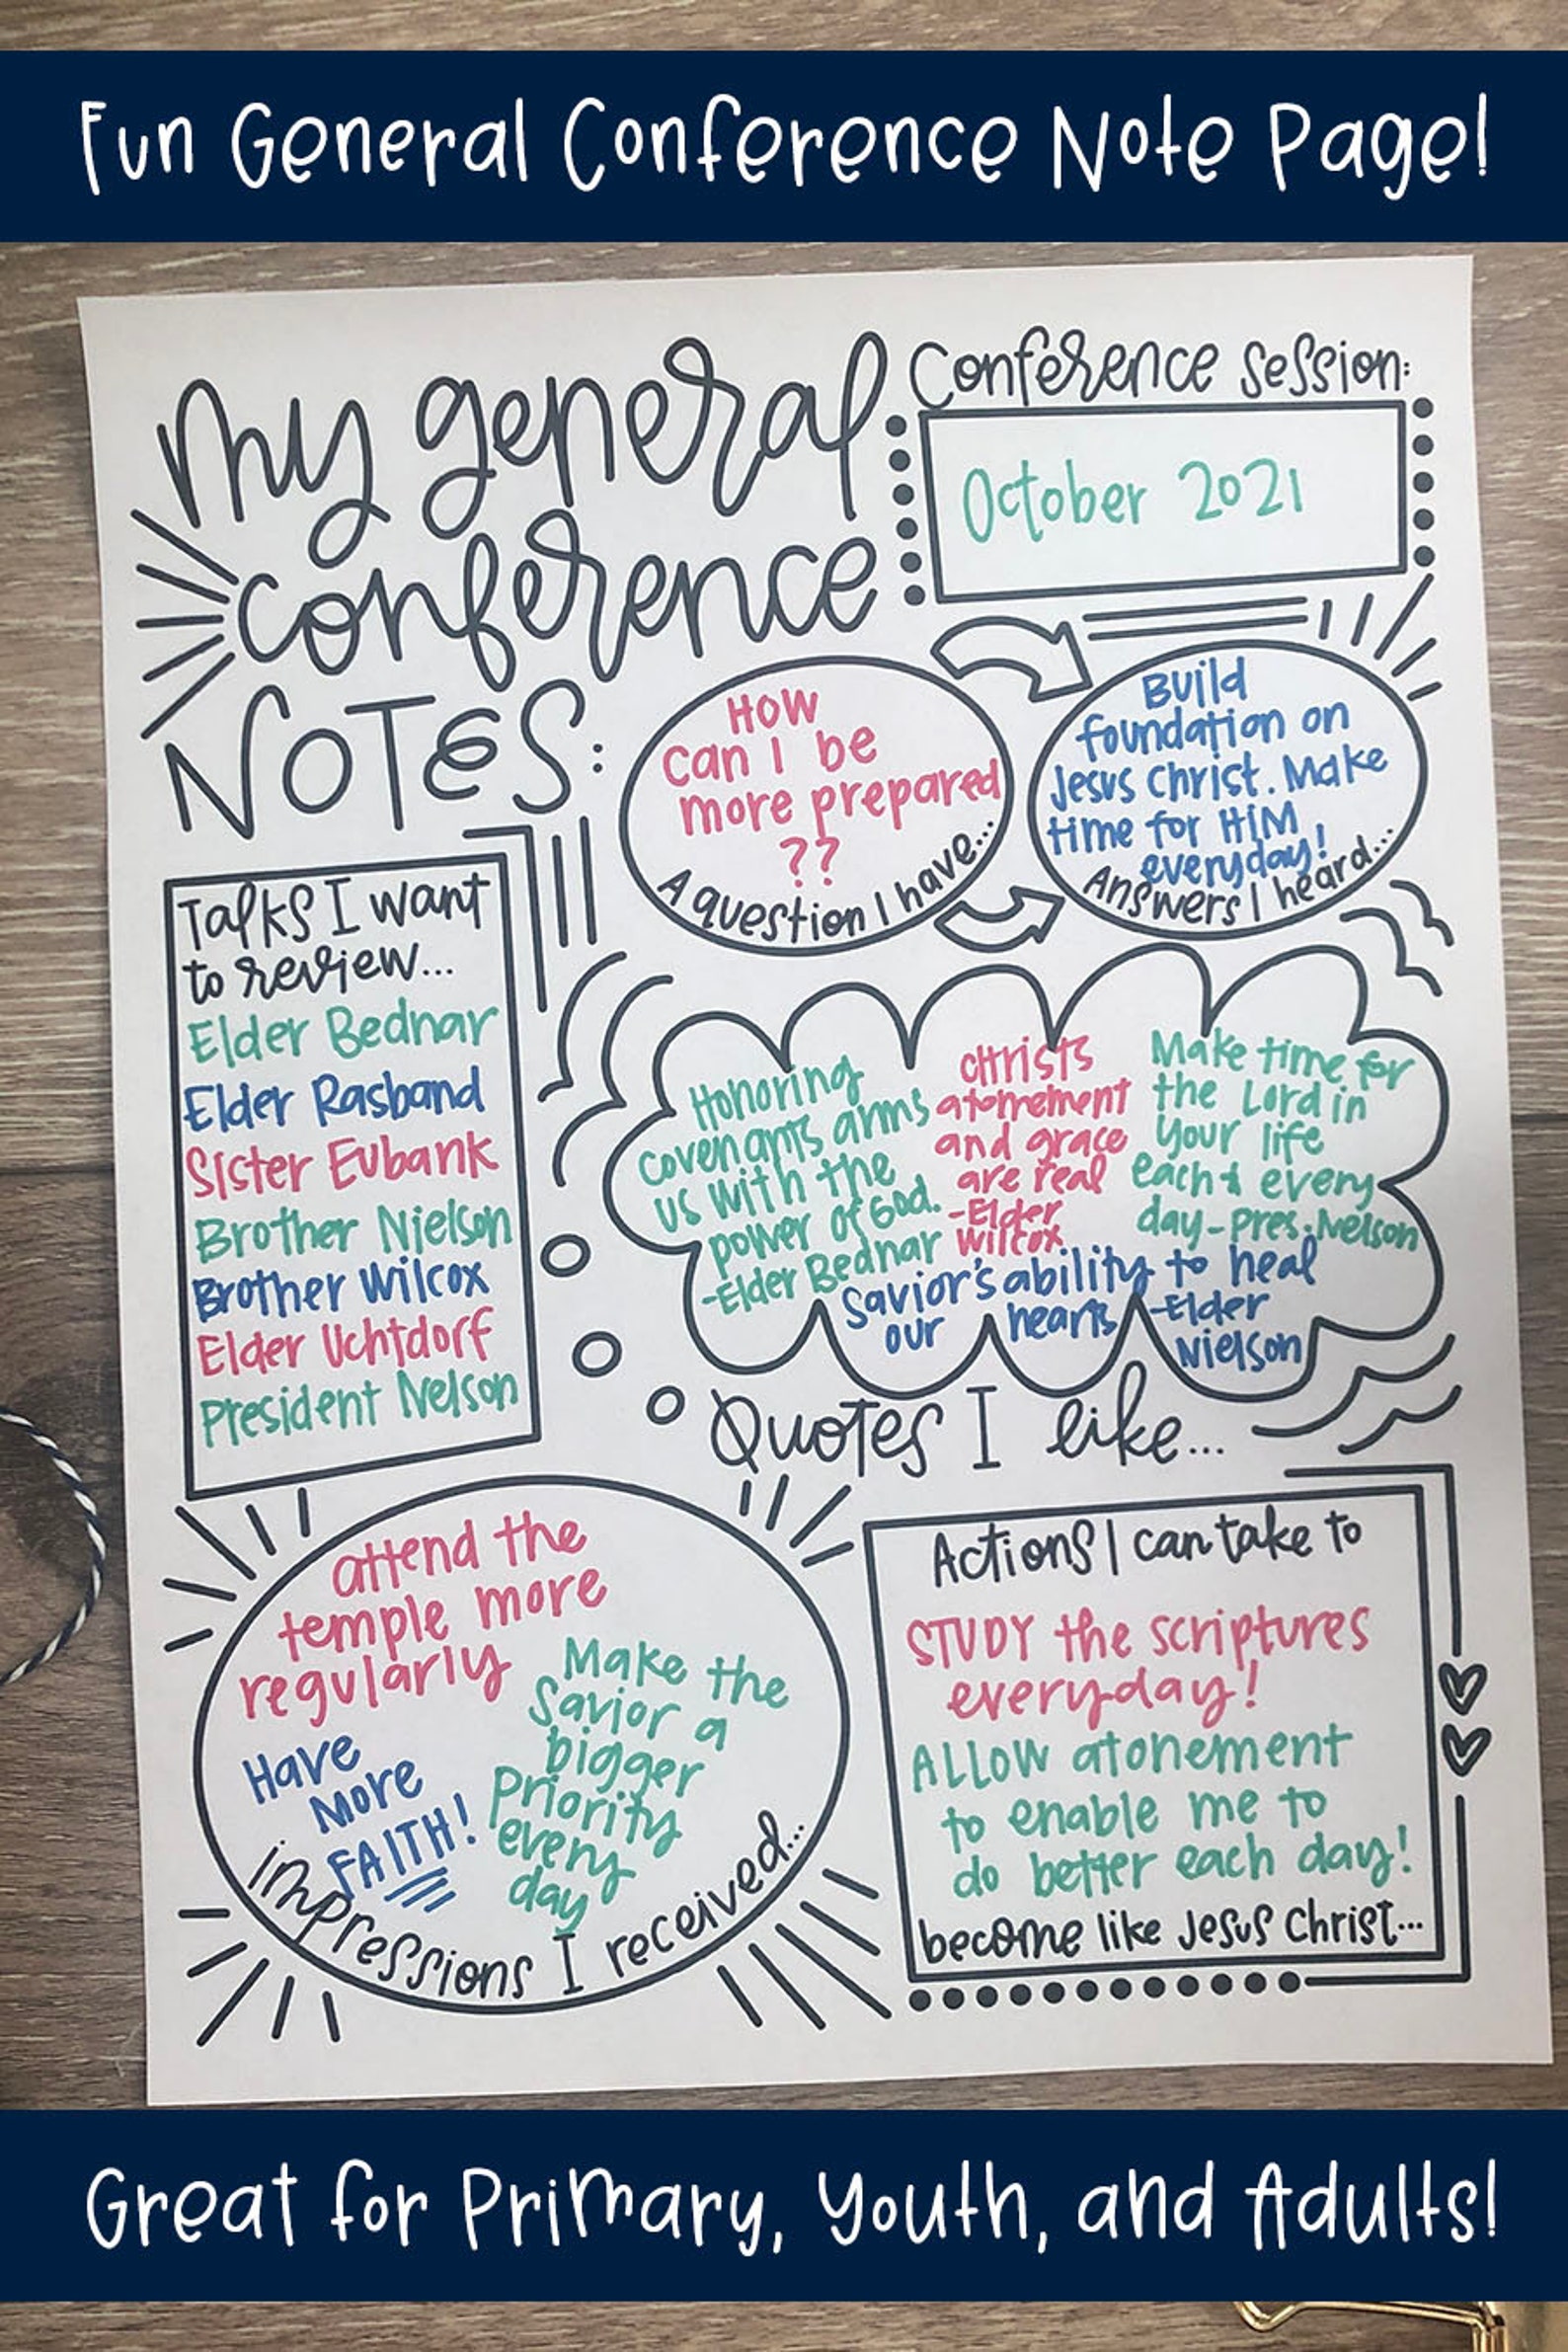 Fun General Conference Note Page!
my general
conference
NOTES:
Conference Session:
October 2021
HOW
can I be
more prepared
??
A question I have...
Build
foundation on
Jesus Christ. Make
time for HIM
everyday!
Answers I heard...
Talks I want
to review...
Elder Bednar
Elder Rasband
Sister Eubank
Brother Nielson
Brother Wilcox
Elder Uchtdorf
President Nelson
Honoring
covenants arms
us with the
power of God.
-Elder Bednar
Christs
atonement
and grace
are real
-Elder
Wilcox
Make time for
the Lord in
your life
each & every
day-Pres. Nelson
Savior's ability to heal
our hearts -Elder
Nielson
Quotes I like...
attend the
temple more
regularly
Have
More
FAITH!
Make the
Savior a
bigger
Priority
every
day
impressions I received...
Actions I can take to
STUDY the scriptures
everyday!
ALLOW atonement
to enable me to
do better each day!
become like Jesus Christ...
Great for Primary, Youth, and Adults!